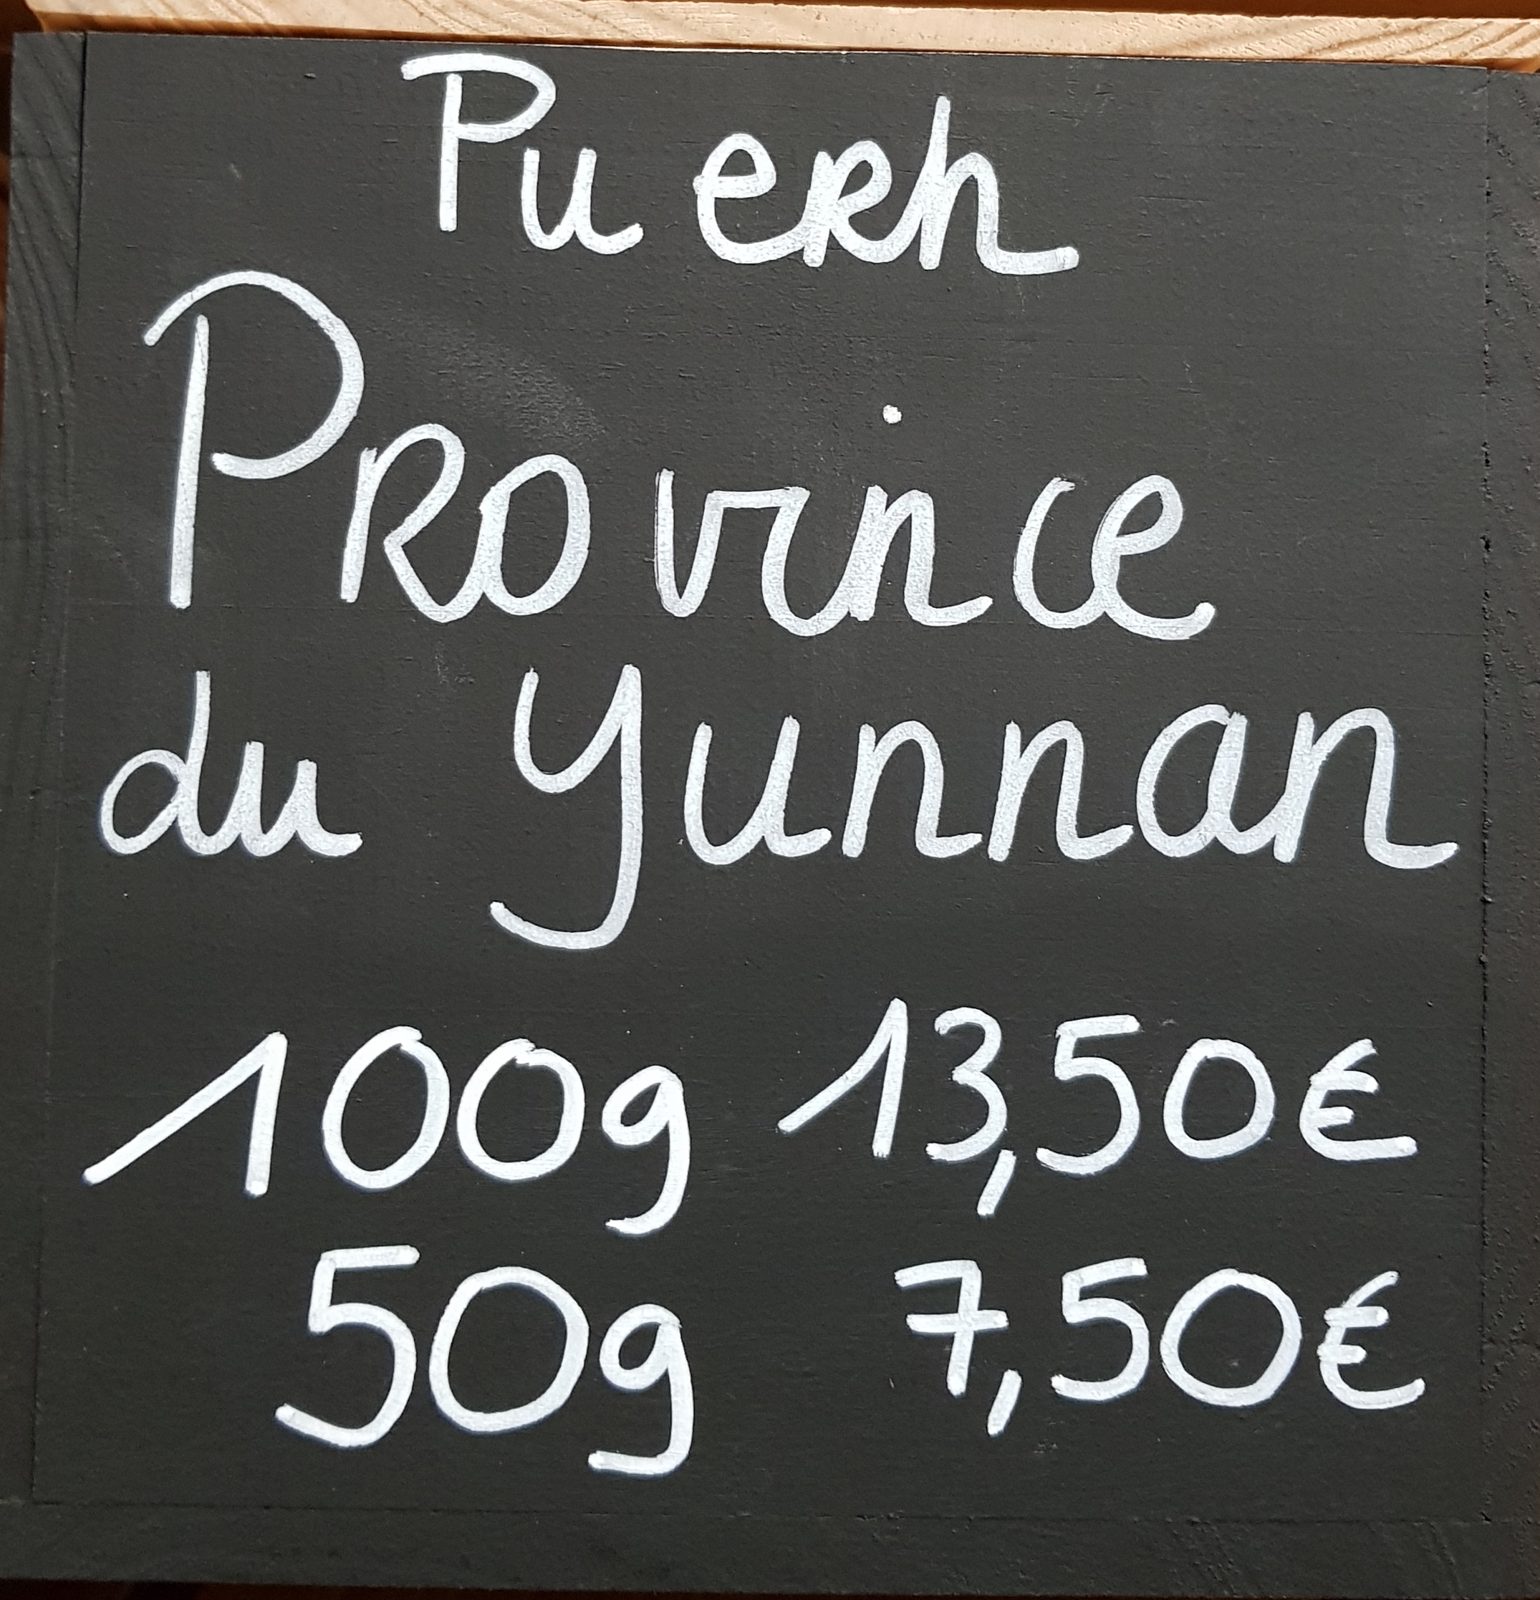 Pu erh
Province
du Yunnan
100g 13,50€
50g 7,50€